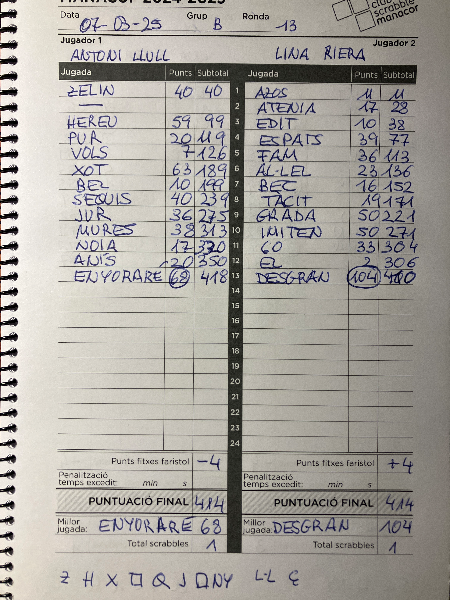 MANACOR 2024-2025
club
scrabble
manacor
Data 07-03-25 Grup B Ronda 13
Jugador 1 Jugador 2
ANTONI LLULL LINA RIERA
Jugada Punts Subtotal Jugada Punts Subtotal
ZELIN 40 40 1 AZOS 11 11
— 2 ATENIA 17 28
HEREU 59 99 3 EDIT 10 38
PUR 20 119 4 ESPATS 39 77
VOLS 7 126 5 FAM 36 113
XOT 63 189 6 AL·LEL 23 136
BEL 10 199 7 BEC 16 152
SEQUIS 40 239 8 TACIT 19 171
JUR 36 275 9 GRADA 50 221
MURES 38 313 10 IMITEN 50 271
NOIA 17 330 11 GO 33 304
ANÍS 20 350 12 EL 2 306
ENYORARE 68 418 13 DESGRAN 104 410
14
15
16
17
18
19
20
21
22
23
24
Punts fitxes faristol -4 Punts fitxes faristol +4
Penalització temps excedit: min s Penalització temps excedit: min s
PUNTUACIÓ FINAL 414 PUNTUACIÓ FINAL 414
Millor jugada: ENYORARE 68 Millor jugada: DESGRAN 104
Total scrabbles 1 Total scrabbles 1
Z H X □ Q J □ NY L·L Ç